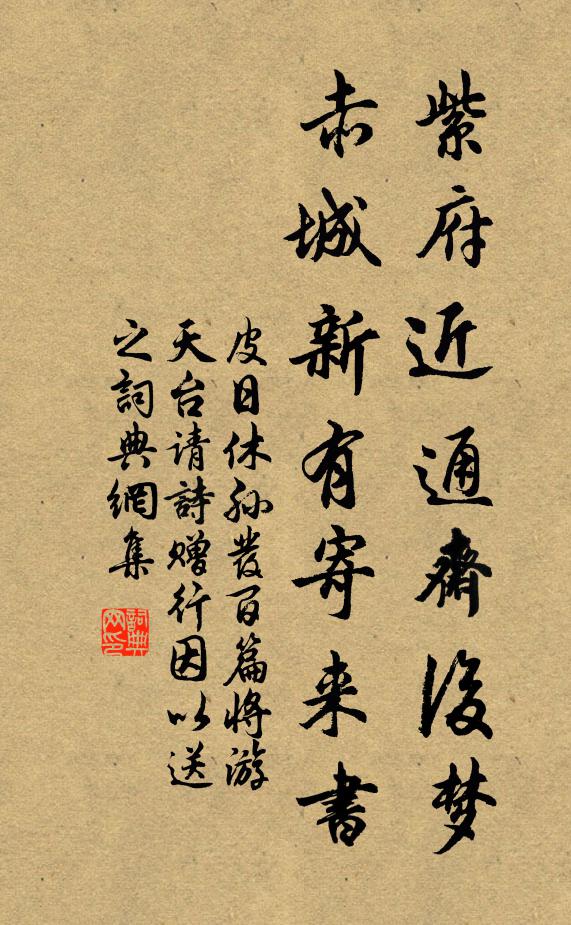 紫府近通齋後梦
赤城新有寄来書
皮日休孙發百篇将游
天台请詩赠行因以送
之詞典網集
詞典网印